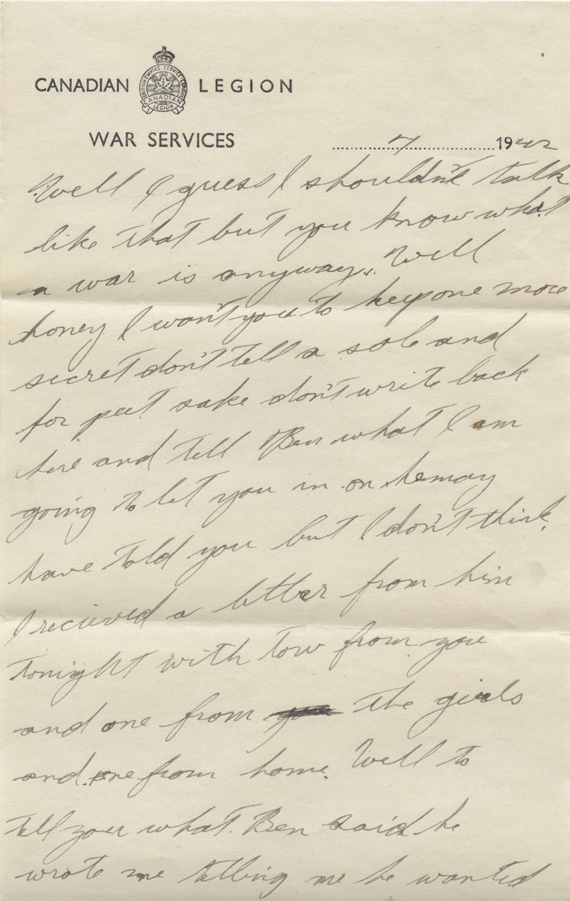 CANADIAN LEGION
WAR SERVICES
7 1942
Well I guess I shouldn't talk
like that but you know what
a war is anyway. Well
honey I want you to keep one more
secret don't tell a sole and
for peet sake don't write back
here and tell Ben what I am
going to let you in on he may
have told you but I don't think
I recieved a letter from him
tonight with tow from you
and one from the girls
and one from home. Well to
tell you what Ben said he
wrote me telling me he wanted